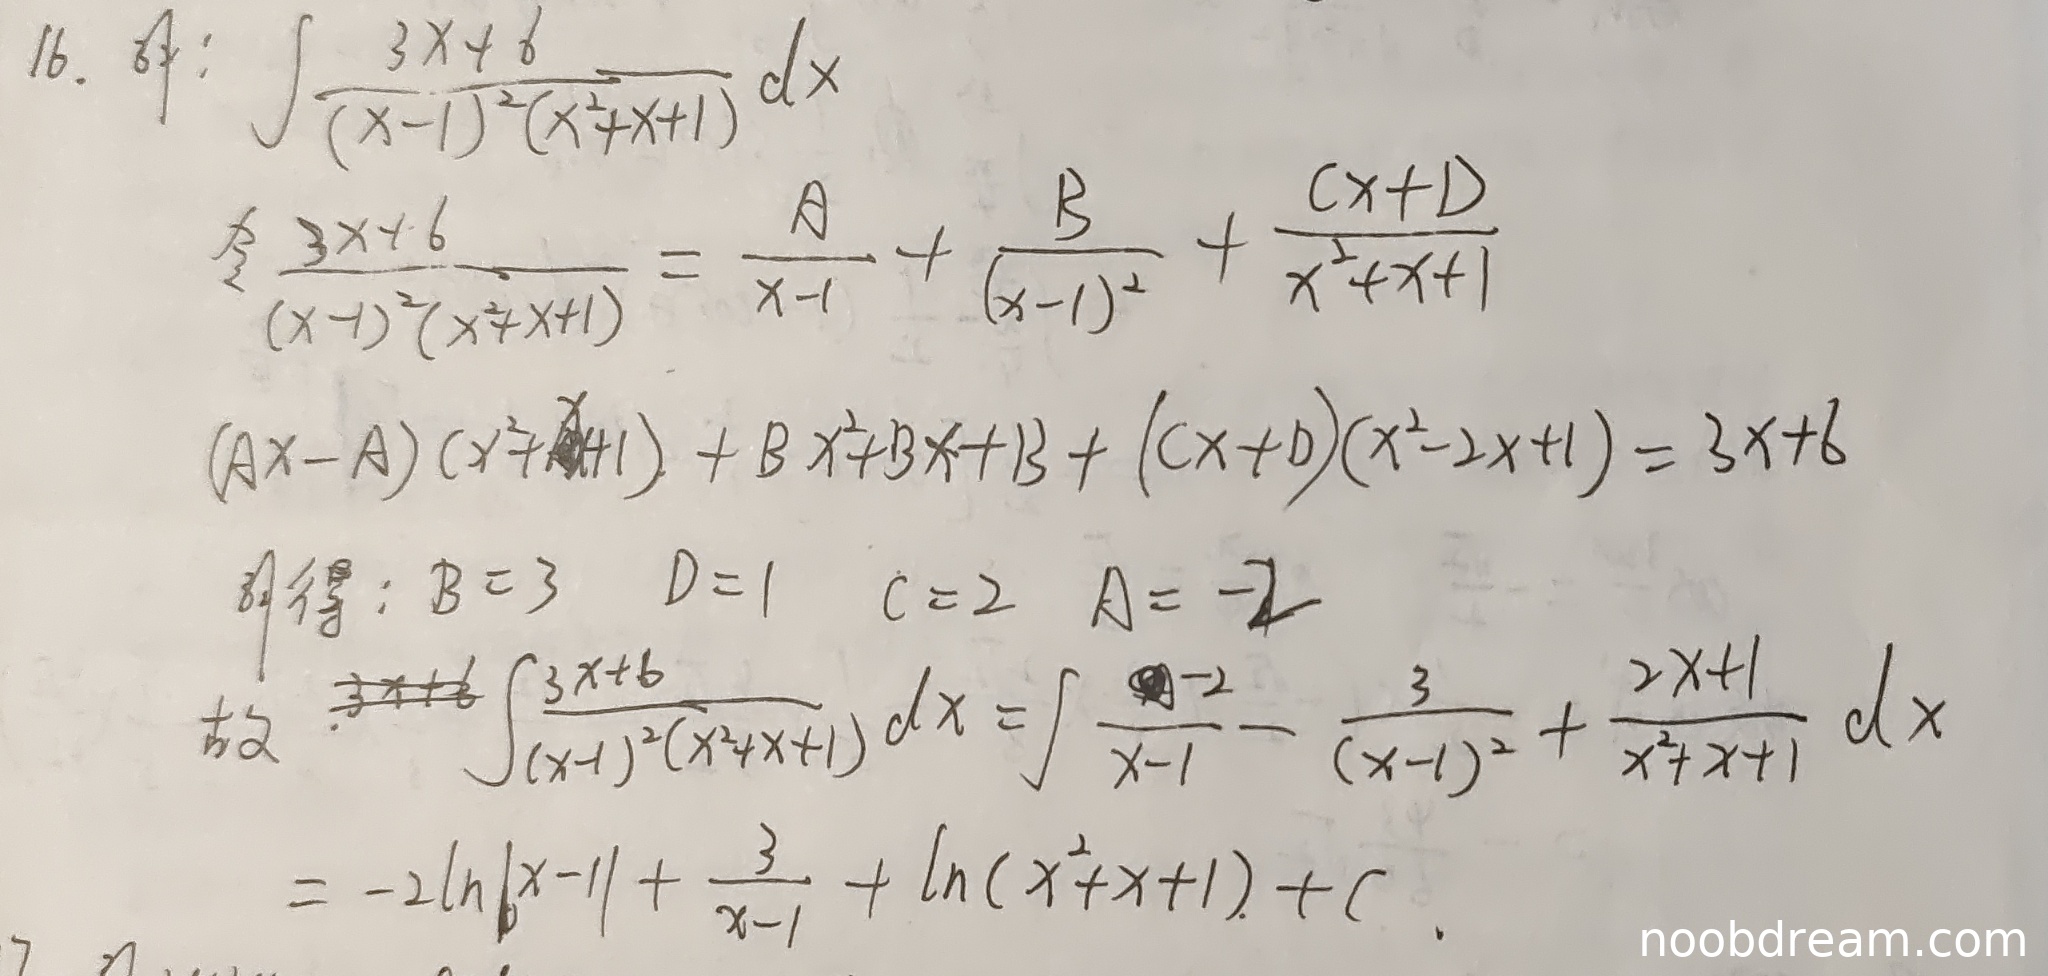 16. 解: ∫ (3x+6)/((x-1)²(x²+x+1)) dx
令 (3x+6)/((x-1)²(x²+x+1)) = A/(x-1) + B/(x-1)² + (Cx+D)/(x²+x+1)
(Ax-A)(x²+x+1) + Bx²+Bx+B + (Cx+D)(x²-2x+1) = 3x+6
解得: B=3 D=1 C=2 A=-2
故 ∫ (3x+6)/((x-1)²(x²+x+1)) dx = ∫ -2/(x-1) - 3/(x-1)² + (2x+1)/(x²+x+1) dx
= -2ln|x-1| + 3/(x-1) + ln(x²+x+1) + C.
noobdream.com